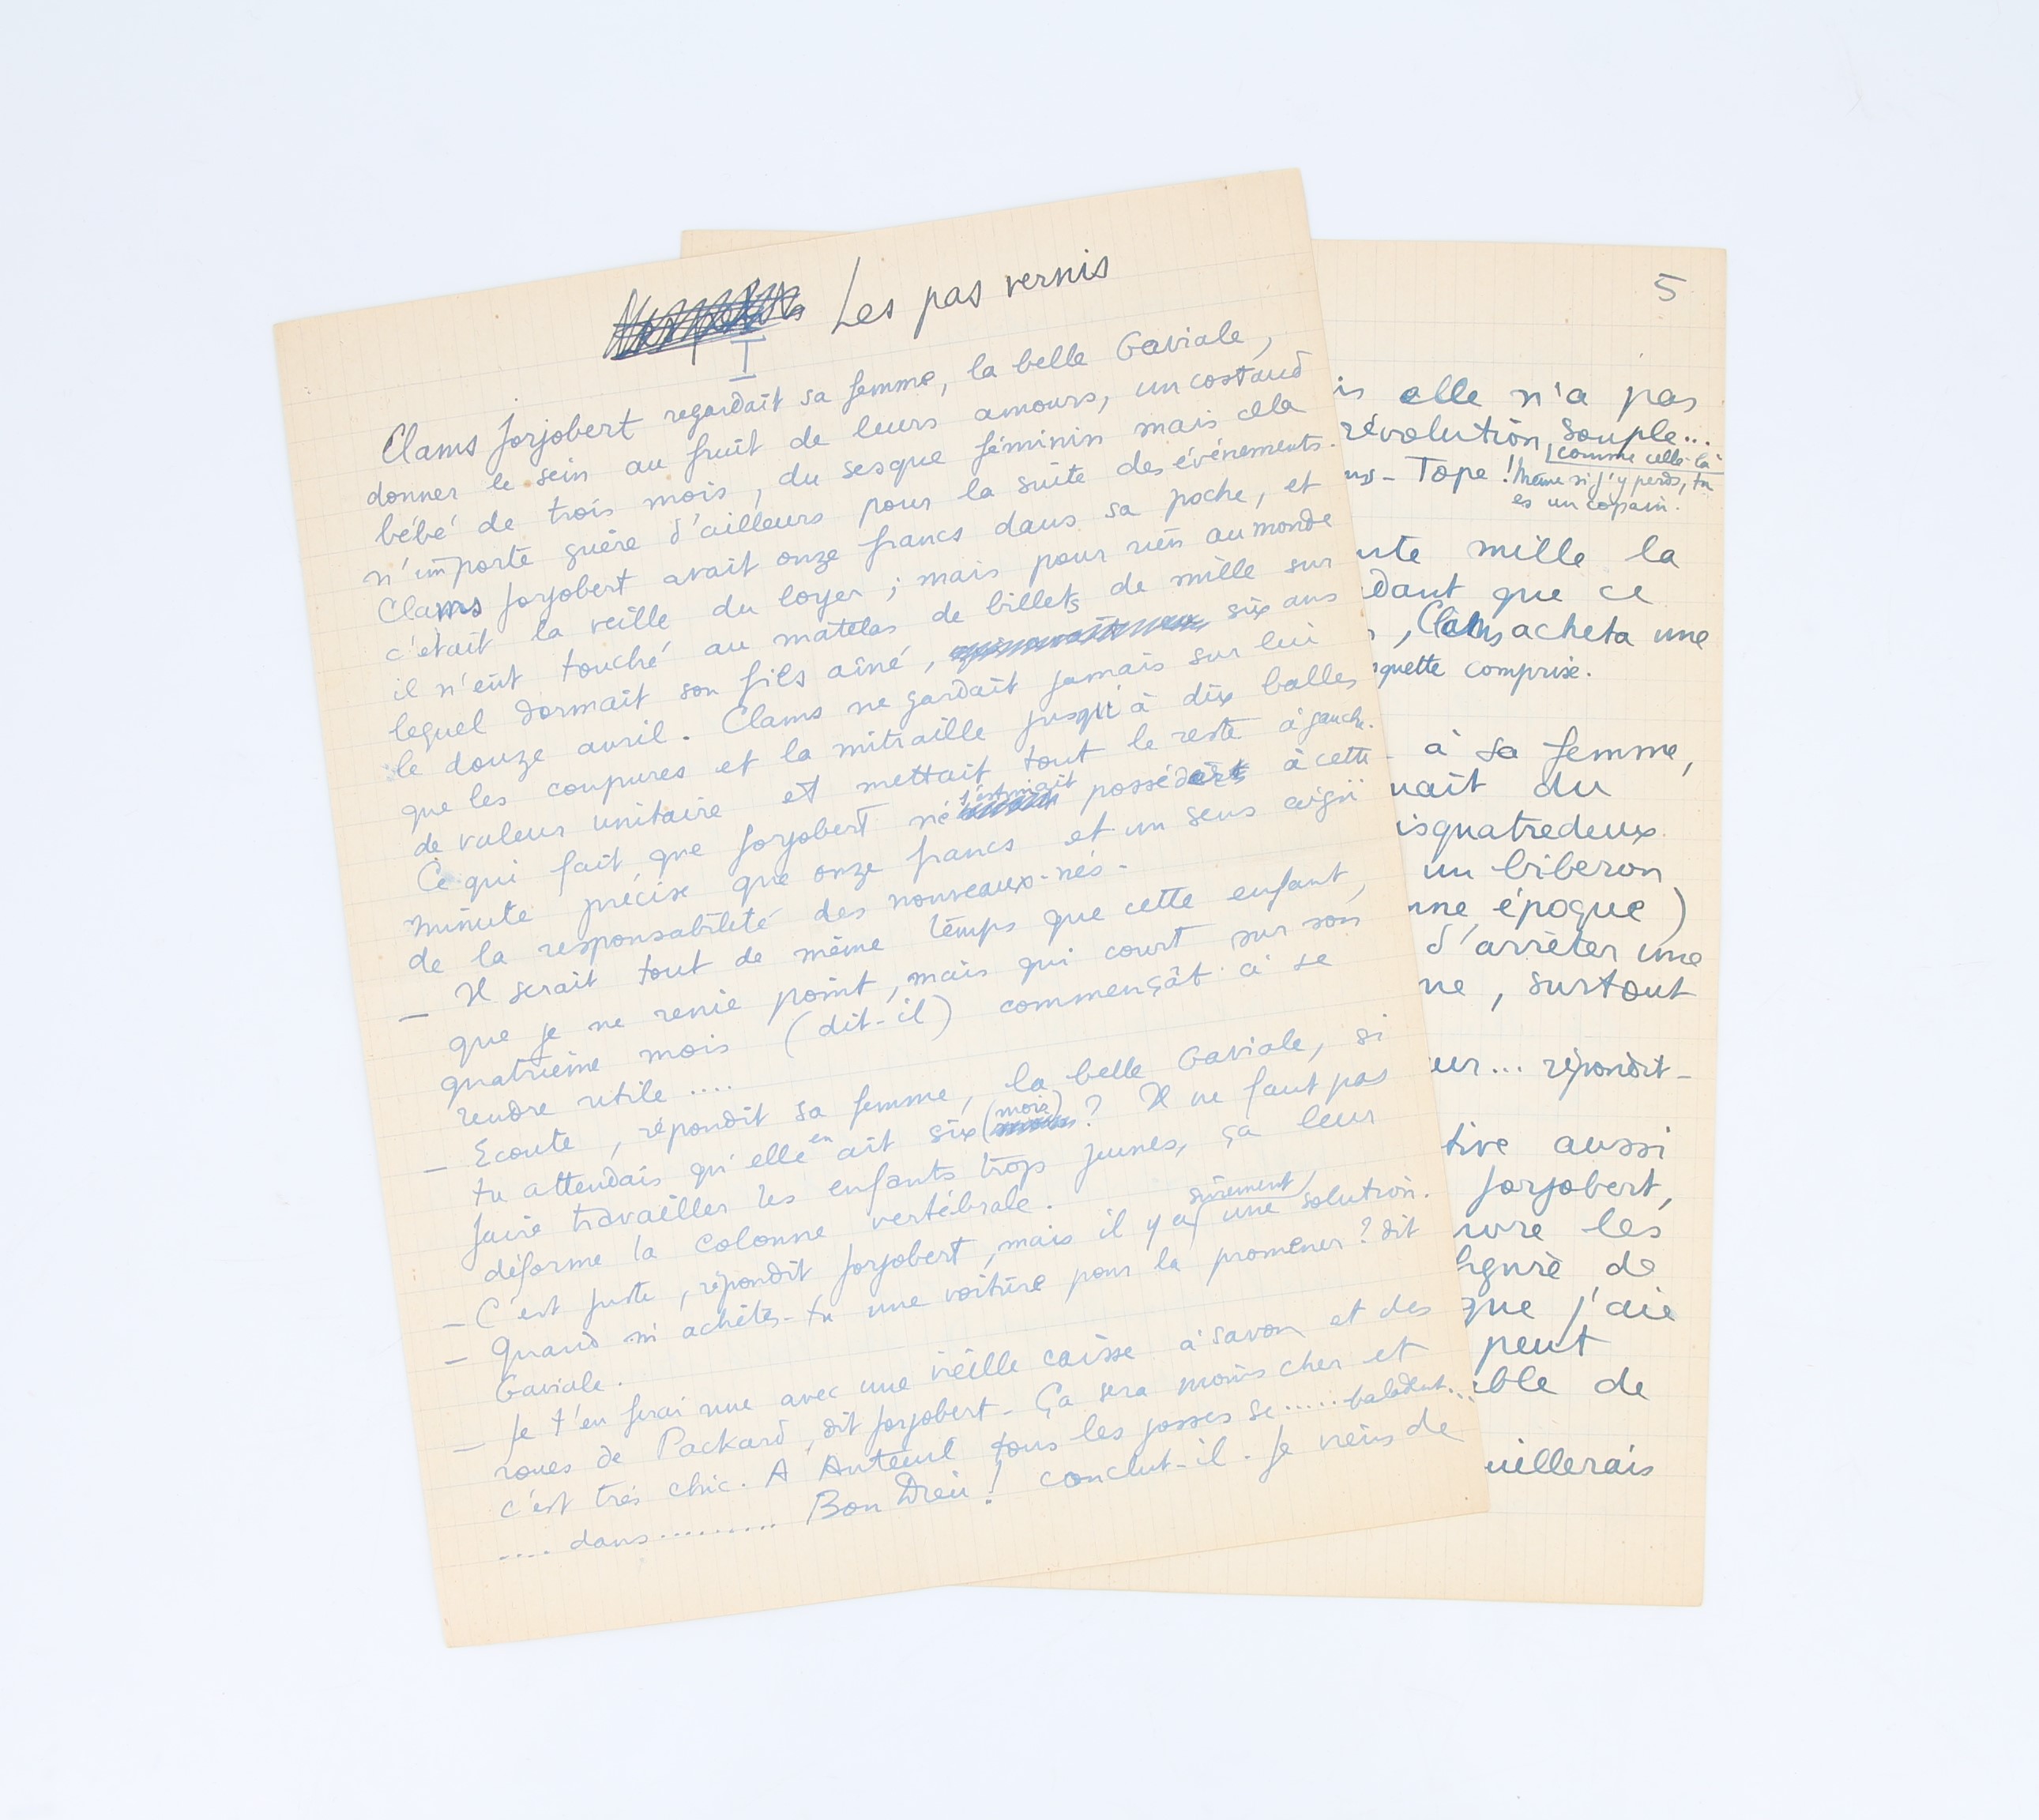 Les pas vernis
I
Clams Jorjobert regardait sa femme, la belle Gaviale,
donner le sein au fruit de leurs amours, un costaud
bébé de trois mois, du sesque féminin mais cela
n'importe guère d'ailleurs pour la suite des événements.
Clams Jorjobert avait onze francs dans sa poche, et
c'était la veille du loyer ; mais pour rien au monde
il n'eût touché au matelas de billets de mille sur
lequel dormait son fils aîné, six ans
le douze avril. Clams ne gardait jamais sur lui
que les coupures et la mitraille jusqu'à dix balles
de valeur unitaire et mettait tout le reste à gauche.
Ce qui fait que Jorjobert né s'estimait posséder à cette
minute précise que onze francs et un sens aigü
de la responsabilité des nouveaux-nés.
— Il serait tout de même temps que cette enfant,
que je ne renie point, mais qui court sur son
quatrième mois (dit-il) commençât à se
rendre utile ....
— Ecoute, répondit sa femme, la belle Gaviale, si
tu attendais qu'elle en ait six (mois) ? Il ne faut pas
faire travailler les enfants trop jeunes, ça leur
déforme la colonne vertébrale.
— C'est juste, répondit Jorjobert, mais il y a sûrement une solution.
— Quand m'achètes-tu une voiture pour la promener ? dit
Gaviale.
— Je t'en ferai une avec une vieille caisse à savon et des
roues de Packard, dit Jorjobert - Ça sera moins cher et
c'est très chic. A Auteuil tous les gosses se ..... baladent...
.... dans ......... Bon Dieu ! conclut-il. Je viens de
5
is elle n'a pas
révolution souple...
comme celle-là
ns - Tope ! Même si j'y perds, tu
es un copain.
nte mille la
dant que ce
, Clams acheta une
quette comprise.
- à sa femme,
nait du
isquatredeux
un biberon
nne époque)
d'arrêter une
ne, surtout
eur... répondit-
tive aussi
Jorjobert,
uvre les
figure de
que j'aie
peut
able de
uillerais